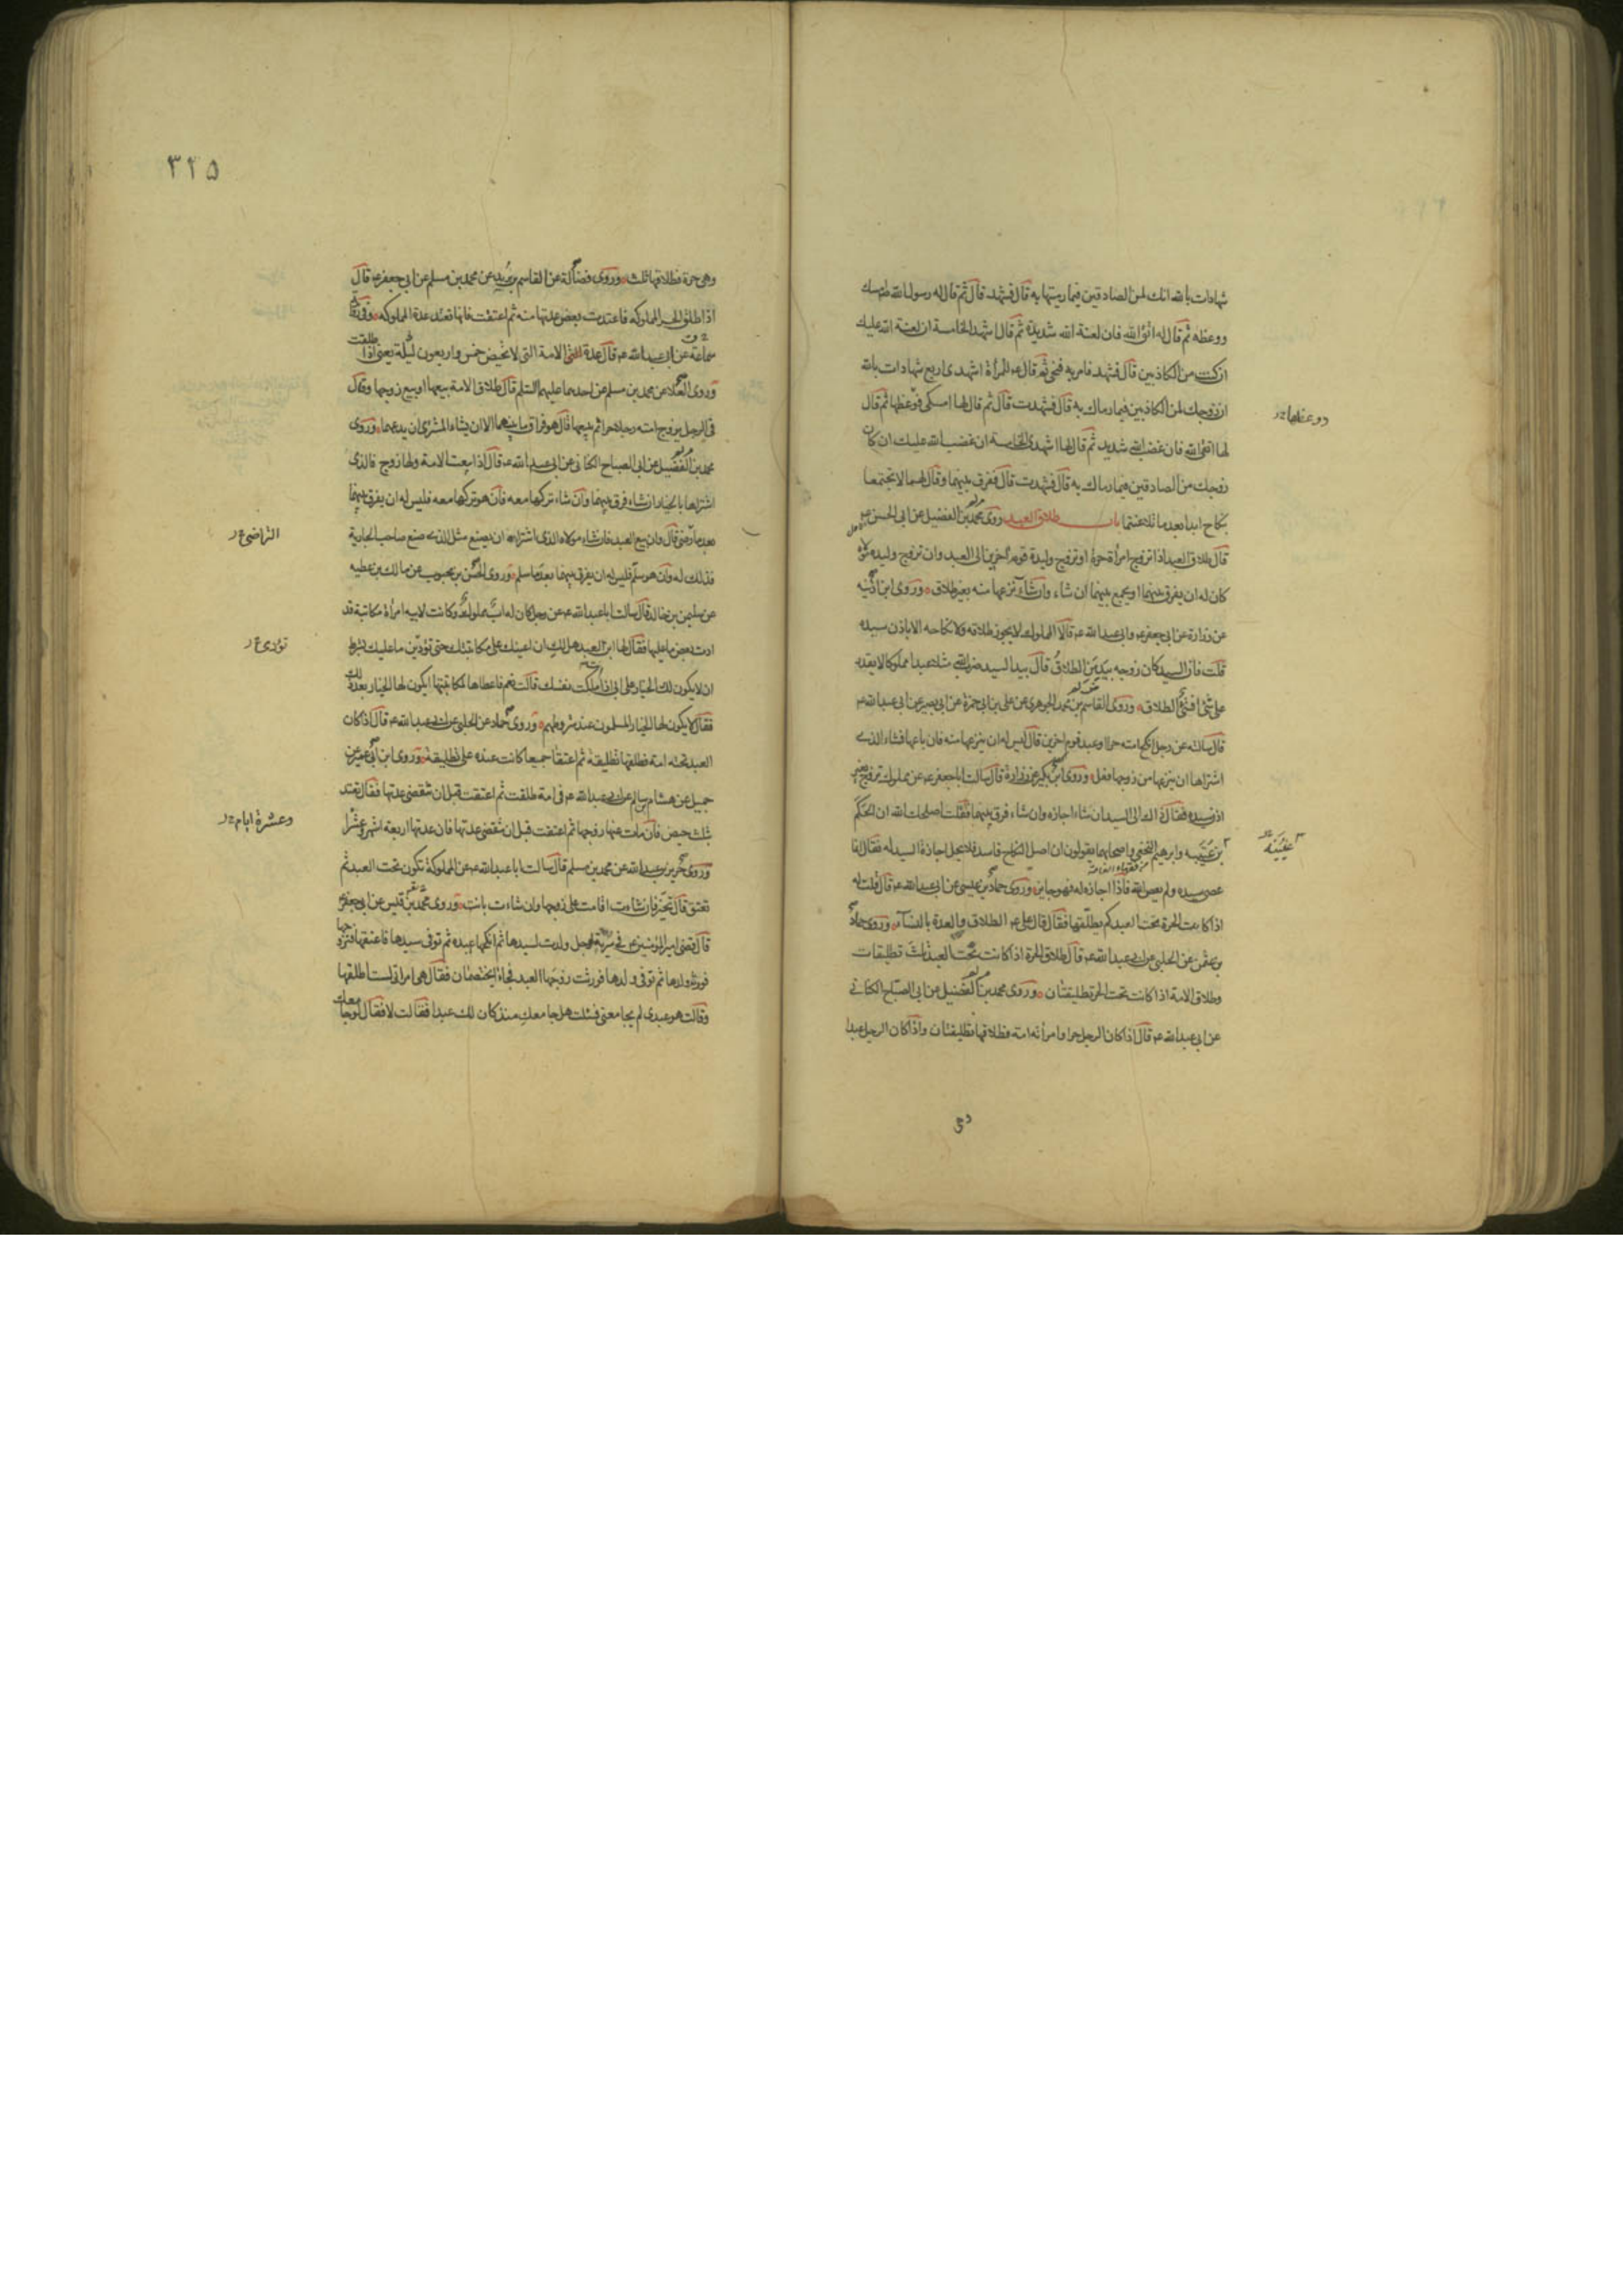 شهادات بالله انك لمن الصادقين فيما رميتها به قال فشهد قال ثم قال له رسول الله امسك
ووعظه ثم قال له اتق الله فان لعنة الله شديدة ثم قال اشهد الخامسة ان لعنة الله عليك
ان كنت من الكاذبين قال فشهد فامر به فنحى ثم قال عم للمرأة اشهدى اربع شهادات بالله
ان زوجك لمن الكاذبين فيما رماك به قال فشهدت قال ثم قال لها امسكى فوعظها ثم قال
ووعظها
لها اتقى الله فان غضب الله شديد ثم قال لها اشهدى الخامسة ان غضب الله عليك ان كان
زوجك من الصادقين فيما رماك به قال فشهدت قال ففرق بينهما وقال لهما لا تجتمعا
بنكاح ابدا بعد ما تلاعنتما باب طلاق العبد روى محمد بن الفضيل عن ابى الحسن
قال طلاق العبد اذا تزوج امرأة حرة او تزوج وليدة قوم آخرين الى العبد وان تزوج وليدة مولاه
كان له ان يفرق بينهما او يجمع بينهما ان شاء وان شاء نزعها منه بغير طلاق وروى ابن اذينه
عن زرارة عن ابى جعفر وابى عبد الله عم قالا المملوك لا يجوز طلاقه ولا نكاحه الا باذن سيده
قلت فان السيد كان زوجه بيد من الطلاق قال بيد السيد ضرب الله مثلا عبدا مملوكا لا يقدر
على شئ افشئ الطلاق وروى القاسم بن محمد الجوهرى عن على بن ابى حمزة عن ابى بصير عن ابى عبد الله عم
قال سالته عن رجل انكح امته حرا او عبد قوم اخرين قال ليس له ان ينزعها منه فان باعها فشاء الذى
اشتراها ان ينزعها من زوجها فعل وروى ابن بكير عن زرارة قال سالت ابا جعفر عم عن مملوك تزوج بغير
اذن سيده فقال ذاك الى السيد ان شاء اجازه وان شاء فرق بينهما فقلت اصلحك الله ان الحكم
بن عتيبه وابرهيم النخعى واصحابهما يقولون ان اصل النكاح فاسد فلا يحل اجازة السيد له فقال انما
عيينة
من فقهاء العامة
عصى سيده ولم يعص الله فاذا اجازه له فهو جايز وروى حماد بن عيسى عن ابى عبد الله عم قال قلت له
اذا كانت الحرة تحت العبد كم يطلقها فقال قال على عم الطلاق والعدة بالنساء وروى حماد
بن عثمن عن الحلبى عن ابى عبد الله عم قال طلاق الحرة اذا كانت تحت العبد ثلث تطليقات
وطلاق الامة اذا كانت تحت الحر تطليقتان وروى محمد بن الفضيل عن ابى الصباح الكنانى
عن ابى عبد الله عم قال اذا كان الرجل حرا وامرأته امة فطلاقها تطليقتان واذا كان الرجل عبدا
وهى
٣٢٥
وهى حرة فطلاقها ثلث وروى فضالة عن القاسم بن بريد عن محمد بن مسلم عن ابى جعفر عم قال
اذا طلق الحر المملوكه فاعتدت بعض عدتها منه ثم اعتقت فانها تعتد عدة المملوكه وفى رواية
سماعة عن ابى عبد الله عم قال عدة الامة التى لا تحيض خمس واربعون ليلة يعنى اذا طلقت
وروى العلا عن محمد بن مسلم عن احدهما عليهما السلم قال طلاق الامة بيعها او بيع زوجها وقال
فى الرجل يزوج امته رجلا حرا ثم يبيعها قال هو فراق ما بينهما الا ان يشاء المشترى ان يدعهما وروى
محمد بن الفضيل عن ابى الصباح الكنانى عن ابى عبد الله عم قال اذا بيعت الامة ولها زوج فالذى
اشتراها بالخيار ان شاء فرق بينهما وان شاء تركها معه فان هو تركها معه فليس له ان يفرق بينهما
بعد ما رضى قال وان بيع العبد فان شاء مولاه الذى اشتراه ان يصنع مثل الذى صنع صاحب الجارية
التراضى
فذلك له وان هو سلم فليس له ان يفرق بينهما بعد ما سلم وروى الحسن بن محبوب عن مالك بن عطيه
عن سليمن بن خالد قال سالت ابا عبد الله عم عن رجل كان له اب مملوك وكانت لابيه امرأة مكاتبة قد
ادت بعض ما عليها فقال لها ابن العبد هل لك ان اعينك على مكاتبتك حتى تؤدين ما عليك بشرط
تؤدى
ان لا يكون لك الخيار على ابى اذا ملكت نفسك قالت نعم فاعطاها لمكاتبتها ايكون لها الخيار بعد ذلك
فقال لا يكون لها الخيار المسلمون عند شروطهم وروى حماد عن الحلبى عن ابى عبد الله عم قال اذا كان
العبد تحته امة فطلقها تطليقة ثم اعتقا جميعا كانت عنده على تطليقة وروى ابن ابى عمير عن
جميل عن هشام بن سالم عن ابى عبد الله عم فى امة طلقت ثم اعتقت قبل ان تنقضى عدتها فقال تعتد
بثلث حيض فان مات عنها زوجها ثم اعتقت قبل ان تنقضى عدتها فان عدتها اربعة اشهر وعشرا
وعشرة ايام
وروى حريز بن عبد الله عن محمد بن مسلم قال سالت ابا عبد الله عم عن المملوكة تكون تحت العبد ثم
تعتق قال تخير فان شاءت اقامت على زوجها وان شاءت بانت وروى محمد بن قيس عن ابى جعفر عم
قال قضى امير المؤمنين عم فى سرية لرجل ولدت لسيدها ثم انكحها عبده ثم توفى سيدها فاعتقها فتزوجها
فورثه ولدها ثم توفى ولدها فورثت زوجها العبد فجاءا يختصمان فقال هى امراتى لست اطلقها
وقالت هو عبدى لم يجامعنى فسئلت هل جامعك منذ كان لك عبدا فقالت لا فقال لو جامعك